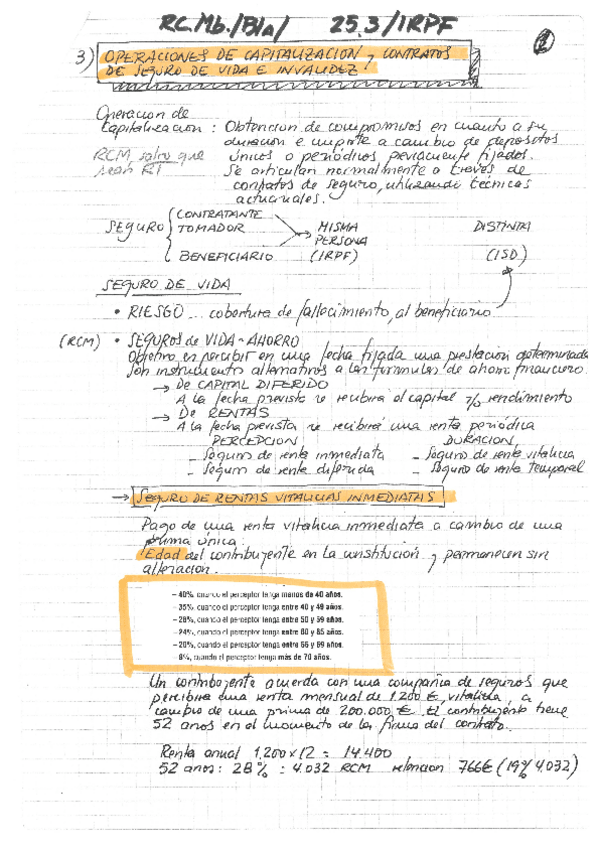 RC.Mb./B/a/ 25.3/IRPF
2
3) OPERACIONES DE CAPITALIZACION y CONTRATOS
DE SEGURO DE VIDA E INVALIDEZ
Operacion de
Capitalizacion : Obtencion de compromisos en cuanto a su
duracion e importe a cambio de depositos
RCM salvo que
únicos o periódicos, previamente fijados.
sean RT
Se articulan normalmente a través de
contratos de seguro, utilizando técnicas
actuariales.
SEGURO
CONTRATANTE
TOMADOR
BENEFICIARIO
MISMA
PERSONA
(IRPF)
DISTINTA
(ISD)
SEGURO DE VIDA
• RIESGO ... cobertura de fallecimiento, al beneficiario
(RCM) • SEGUROS de VIDA - AHORRO
Objetivo es percibir en una fecha fijada una prestación determinada
Son instrumentos alternativos a las formulas de ahorro financiero.
→ De CAPITAL DIFERIDO
A la fecha prevista se recibira el capital y/o rendimiento
→ De RENTAS
A la fecha prevista se recibirá una renta periódica
PERCEPCION DURACION
- Seguro de renta inmediata - Seguro de renta vitalicia
- Seguro de renta diferida - Seguro de renta Temporal
→ SEGURO DE RENTAS VITALICIAS INMEDIATAS
Pago de una renta vitalicia inmediata a cambio de una
prima única.
Edad del contribuyente en la constitución y permanecen sin
alteración.
– 40%, cuando el perceptor tenga menos de 40 años.
– 35%, cuando el perceptor tenga entre 40 y 49 años.
– 28%, cuando el perceptor tenga entre 50 y 59 años.
– 24%, cuando el perceptor tenga entre 60 y 65 años.
– 20%, cuando el perceptor tenga entre 66 y 69 años.
– 8%, cuando el perceptor tenga más de 70 años.
Un contribuyente acuerda con una compañia de seguros que
percibira una renta mensual de 1.200 €, vitalicia, a
cambio de una prima de 200.000 €. El contribuyente tiene
52 anos en el momento de la firma del contrato.
Renta anual 1.200 x 12 = 14.400
52 anos: 28% : 4.032 RCM retencion 766€ (19% 4.032)